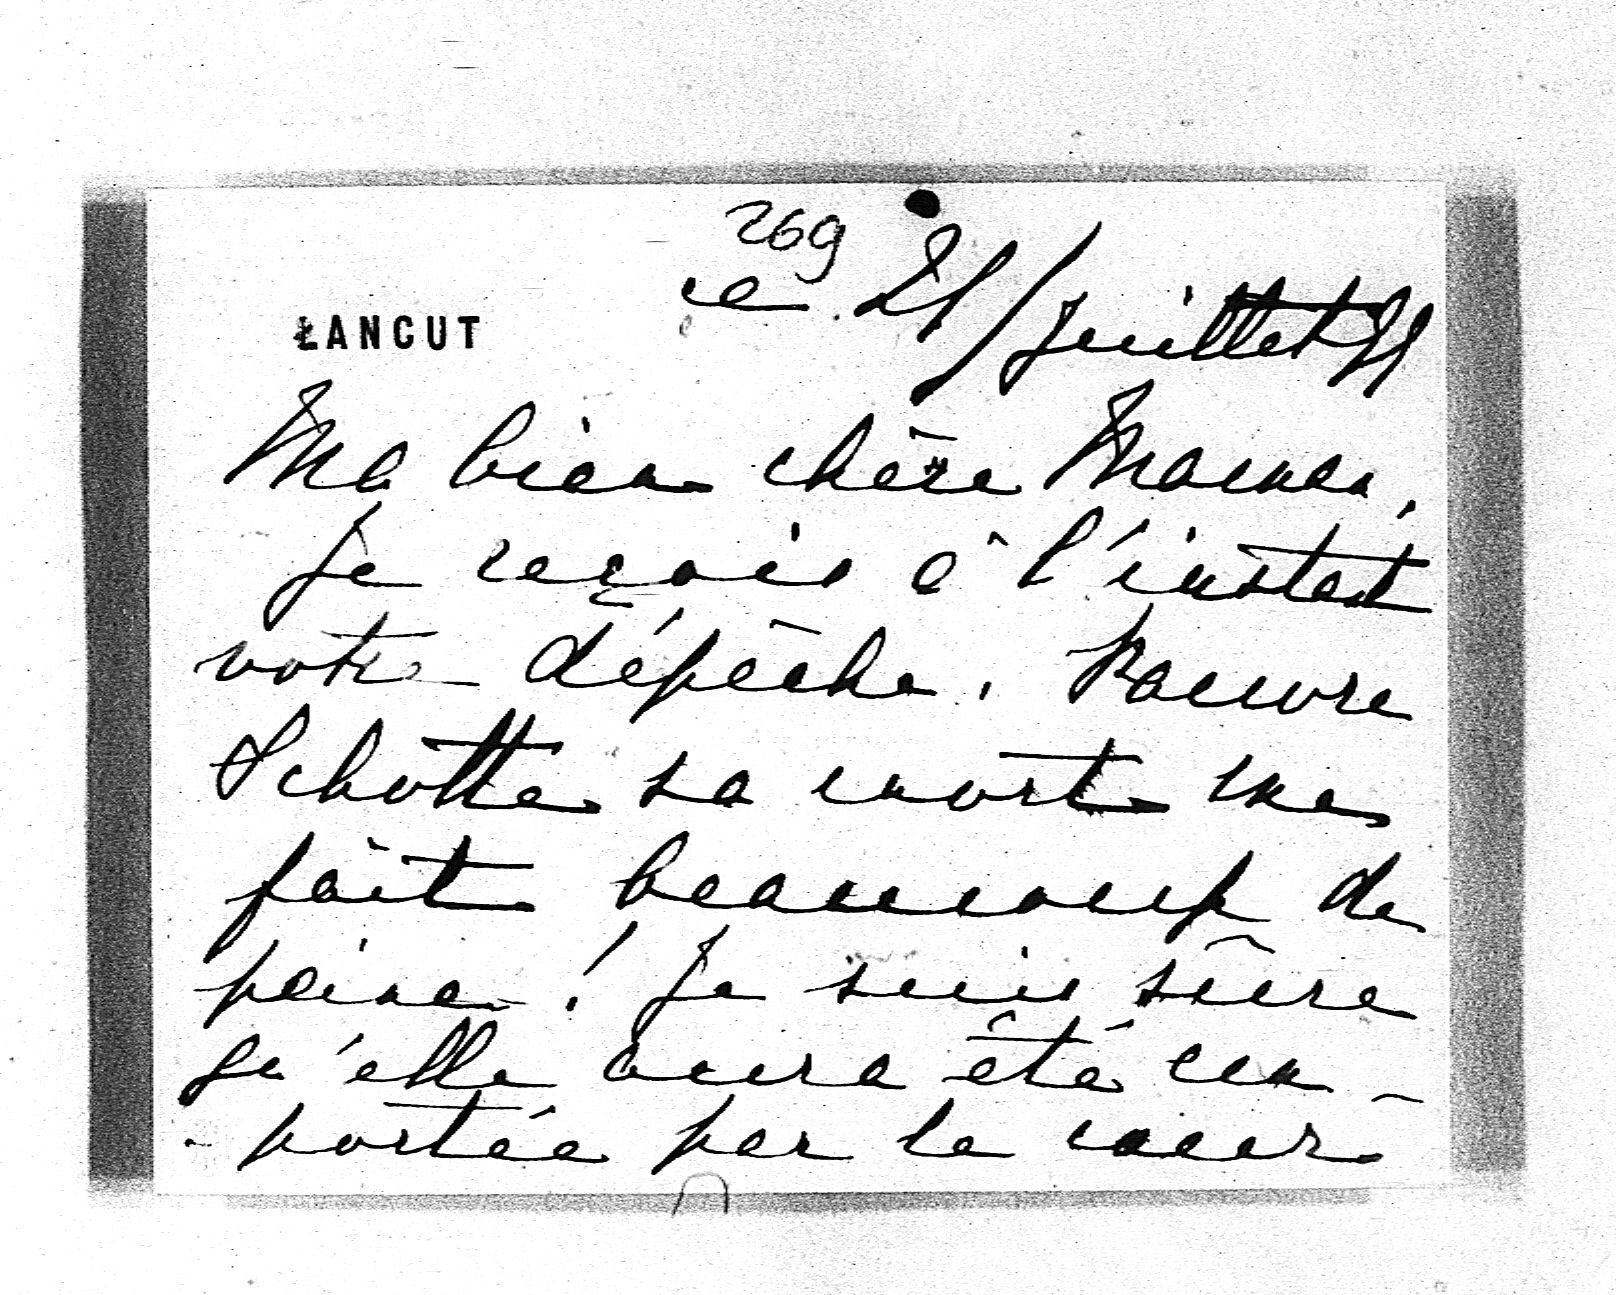 269
ce 21/Juillet 99
ŁANCUT
Ma bien chère Maman,
Je reçois à l'instant
votre dépêche. Pauvre
Schotte sa mort me
fait beaucoup de
peine! Je suis sûre
qu'elle aura été em-
-portée par le cœur